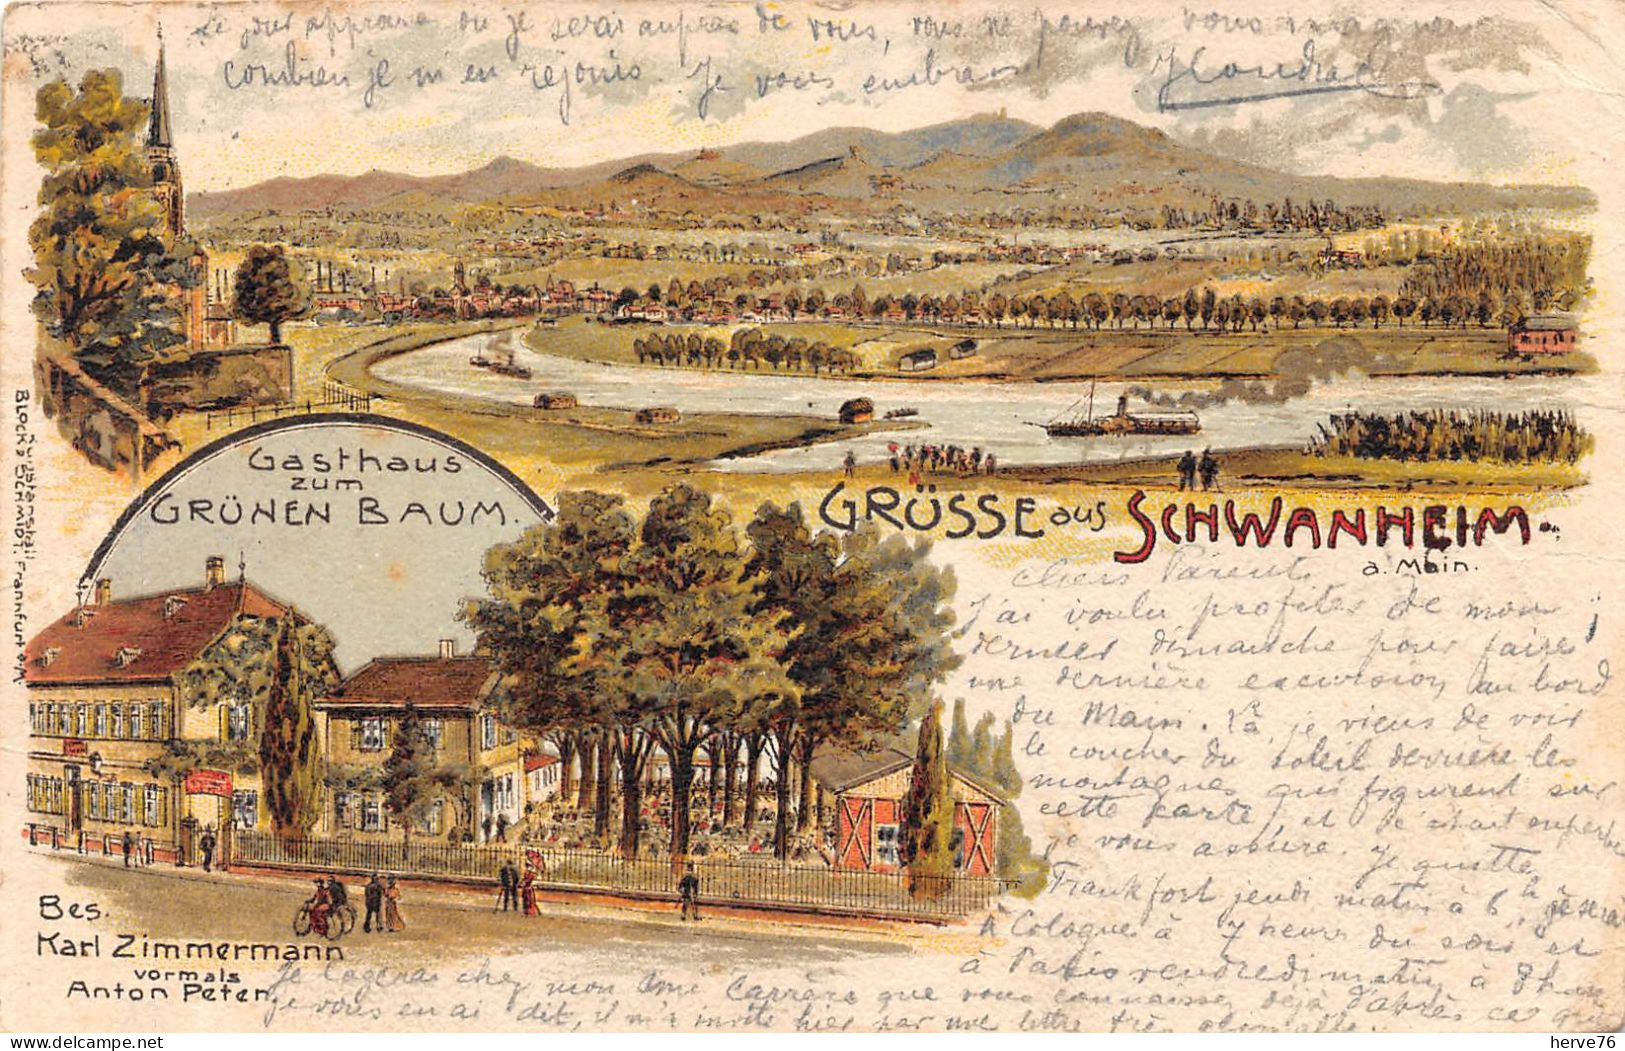 Le jour approche ou je serai auprès de vous, vous ne pouvez vous imaginer
combien je m'en réjouis. Je vous embrasse
Gasthaus
zum
GRÜNEN BAUM.
GRÜSSE aus SCHWANHEIM
a. Main.
chers Parents
J'ai voulu profiter de mon
dernier dimanche pour faire
une dernière excursion au bord
du Main. Là, je viens de voir
le coucher du soleil derrière les
montagnes qui figurent sur
cette carte, et c'était superbe
je vous assure. Je quitte
Frankfort jeudi matin à 6h je serai
à Cologne à 7 heures du soir et
à Paris vendredi matin à
Je logerai chez mon ami Carrère que vous connaissez déjà d'après ce que
je vous en ai dit, il m'a invité hier par une lettre très
Bes.
Karl Zimmermann
vormals
Anton Peter.
BLOCK & SCHMIDT, Frannfurt a/M.
herve76